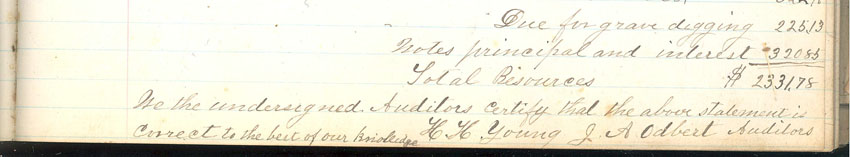 Due for grave digging 225,13
Notes principal and interest 320,85
Total Resources $ 2331,78
We the undersigned Auditors certify that the above statement is
correct to the best of our knolledge H H Young J A Odbert Auditors